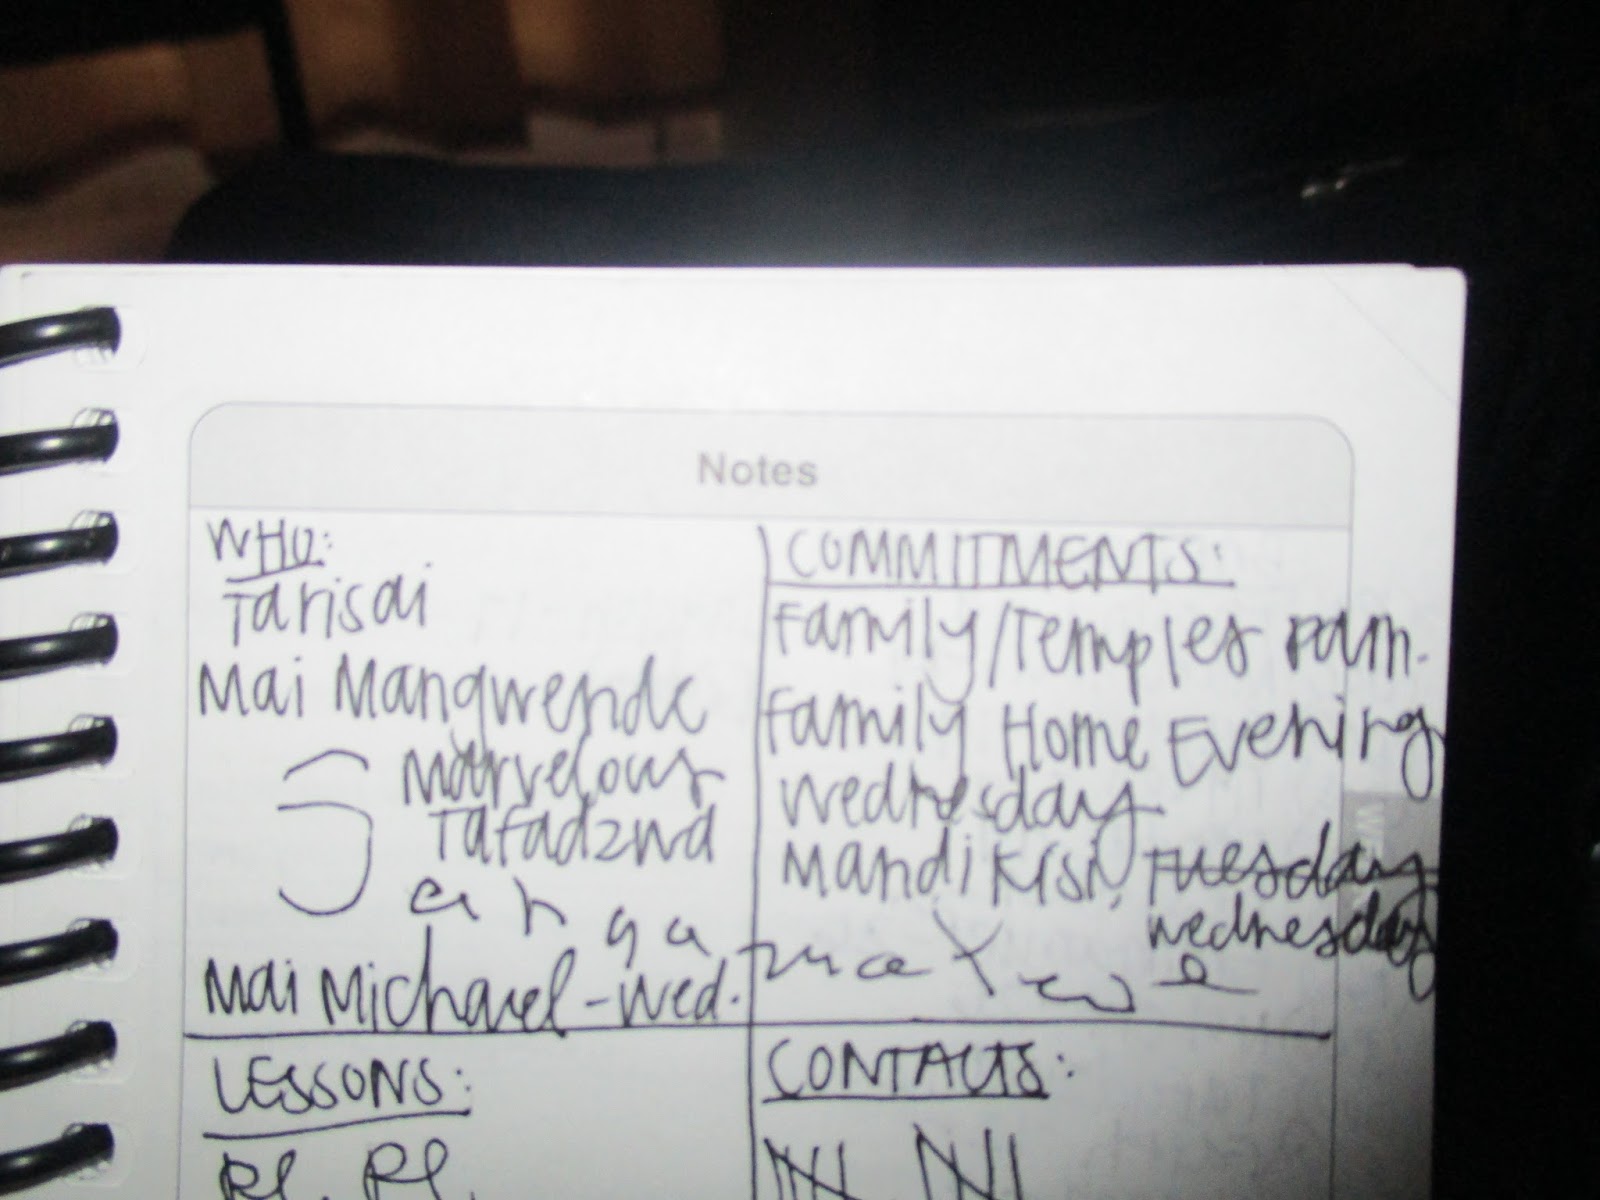 Notes
WHO:
Tarisai
Mai Mangwende
Marvelous
Tafadzwa
Mai Michael - Wed.
COMMITMENTS:
Family/Temples Pam.
Family Home Evening
Wednesday
Mandi Tuesday
Wednesday
LESSONS:
RL. RL
CONTACTS: